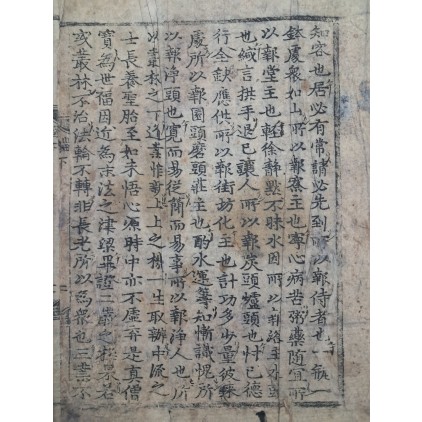 知客也居必有常請必先到所以報侍者也一瓶一
鉢處衆如山所以報寮主也寧心病苦粥藥隨宜所
以報堂主也輕徐靜默不昧水因所以報浴主水頭
也緘言拱手退已讓人所以報炭頭爐頭也忖已德
行全缺應供所以報街坊化主也計功多少量彼來
處所以報園頭磨頭莊主也酌水運籌知慚識愧所
以報淨頭也寬而易從簡而易事所以報淨人也所
以叢林之下道業惟新上上之機一生取辦中流之
士長養聖胎至如未悟心源時中亦不虛弃是真僧
寶為世福田近為末法之津梁畢證二嚴之極果若
或叢林不治法輪不轉非長老所以為衆也三業不